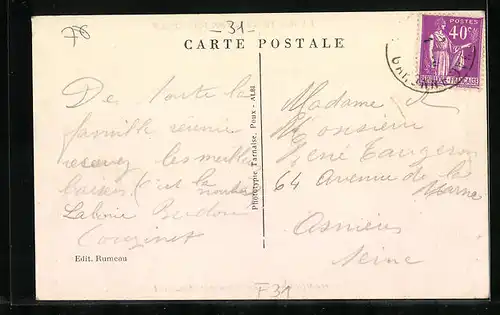 76
-31-
CARTE POSTALE
POSTES
40c
De toute la
famille réunie
recevez les meilleurs
baisers (c'est la
Laborie
Couzinet
Edit. Rumeau
Phototypie Tarnaise, Poux - ALBI
Madame et
Monsieur
René
64 Avenue de la
Marne
Asnières
Seine
F31